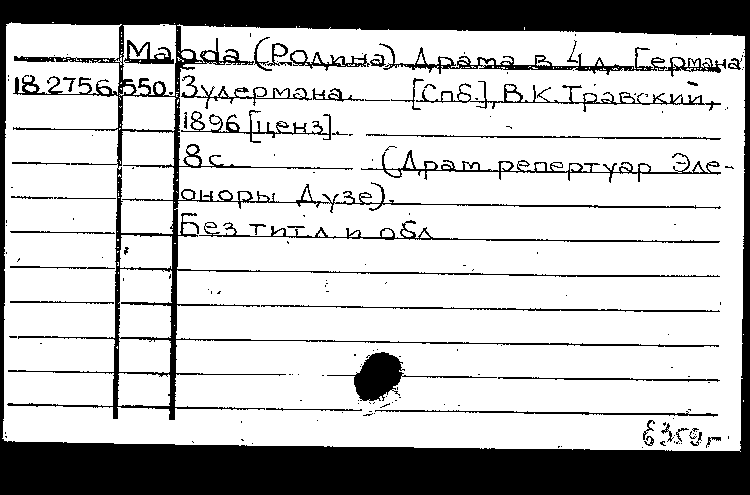 Magda (Родина) Драма в 4 д. Германа
18.275.6.550. Зудермана. [Спб.], В.К.Травский,
1896 [ценз].
8 с. (Драм. репертуар Эле-
оноры Дузе).
Без тит. л. и обл
6359г